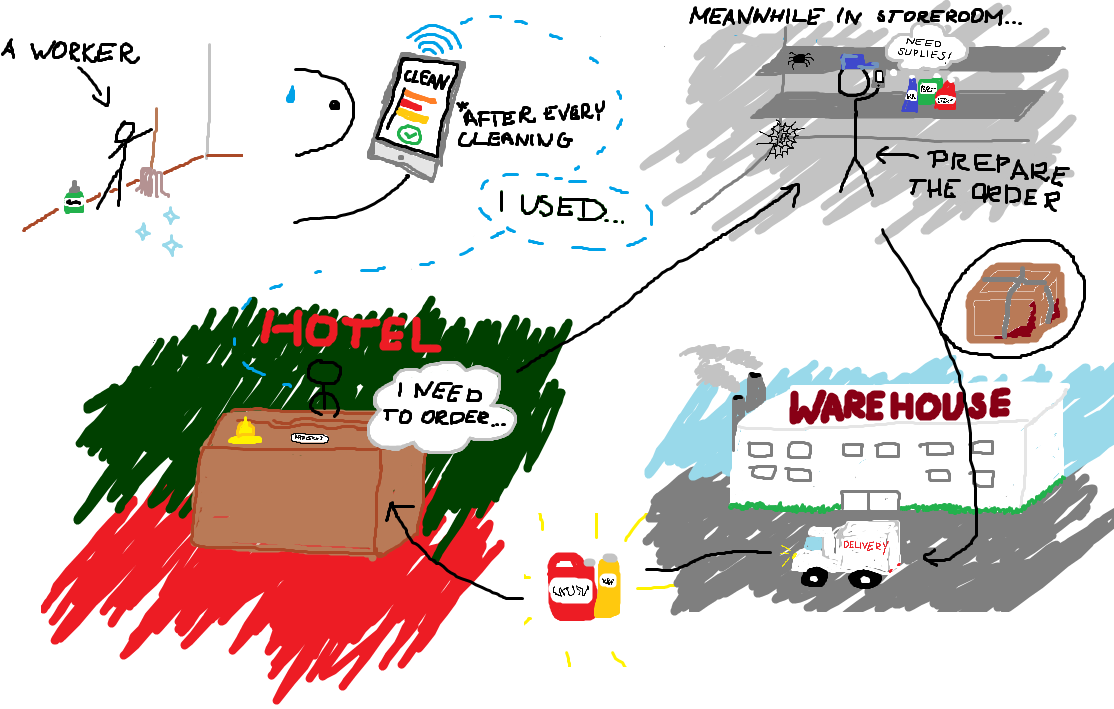 A WORKER
CLEAN
*AFTER EVERY
CLEANING
I USED...
MEANWHILE IN STOREROOM...
NEED
SUPLIES!
PREPARE
THE ORDER
HOTEL
I NEED
TO ORDER...
WAREHOUSE
DELIVERY